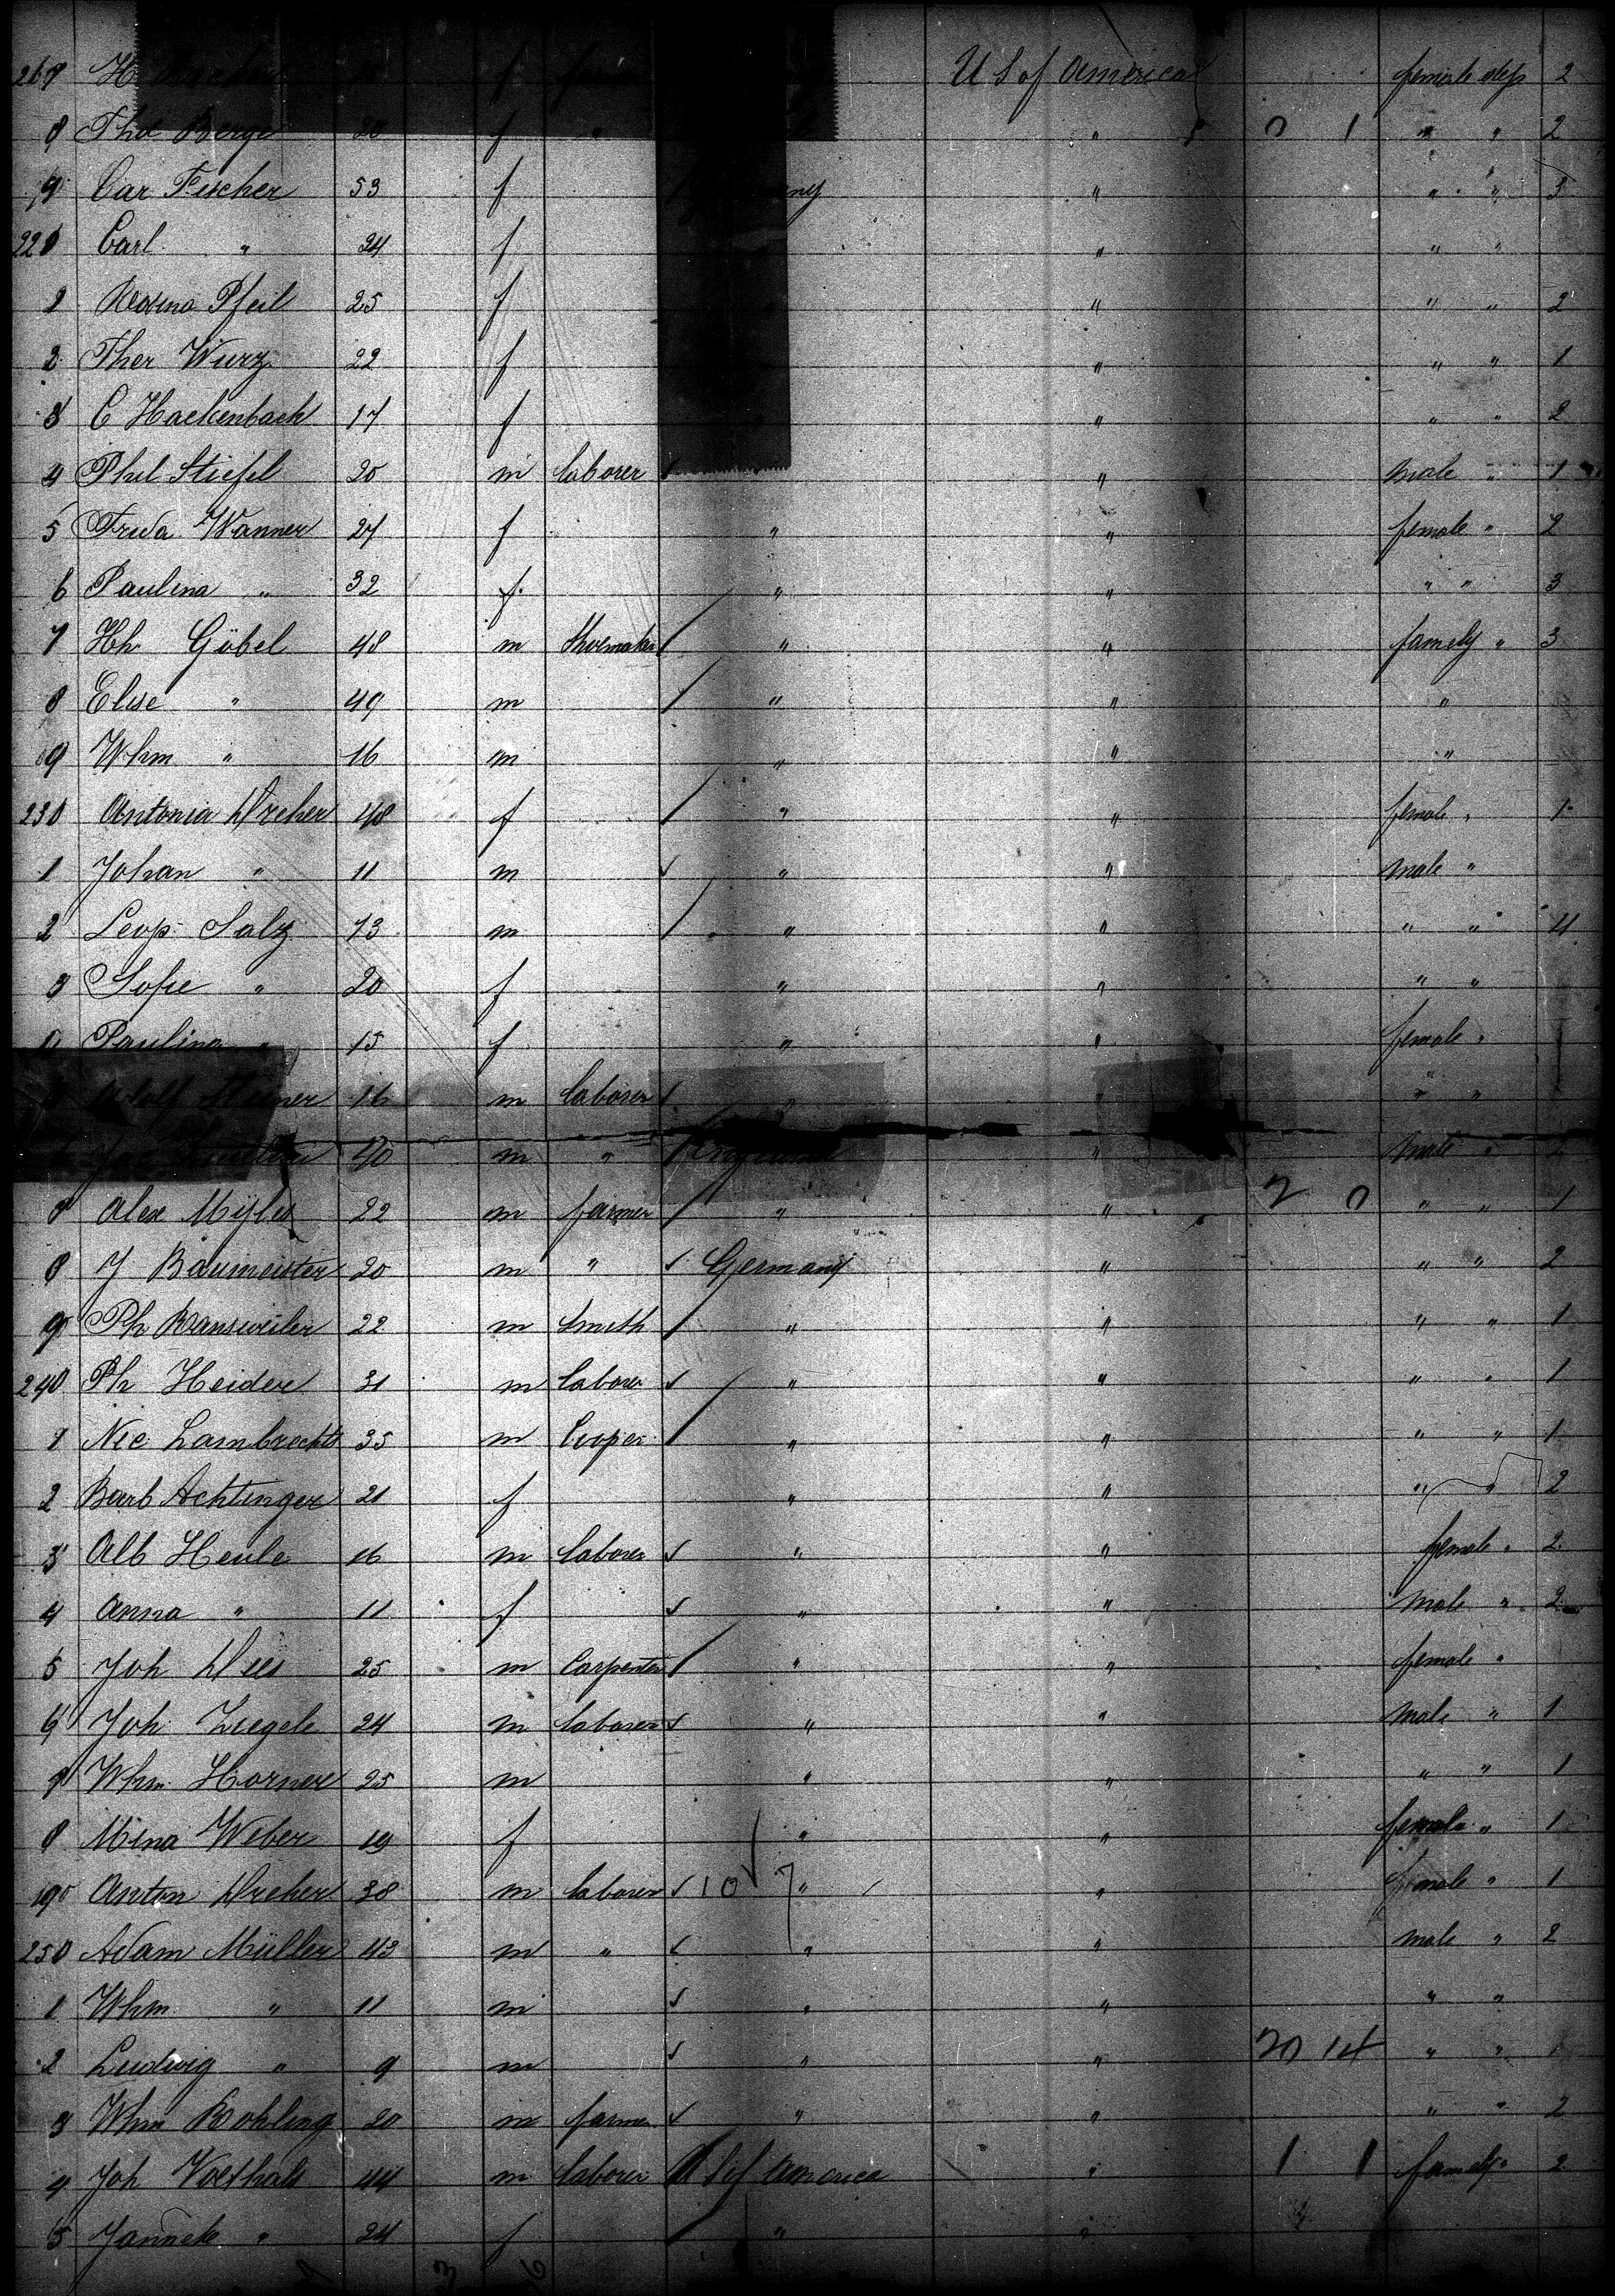 H f U S of America female deps 2
8 Thd Berge 20 f " " 0 1 " " 2
9 Car Fischer 53 f " " " 3
220 Carl " 24 f " " "
1 Rosina Pfeil 25 f " " " 2
2 Ther Wurz 22 f " " " 1
3 C Hackenbach 17 f " " " 2
4 Phil Stiefel 20 m laborer " male " 1
5 Frida Wanner 27 f " " female " 2
6 Paulina " 32 f " " " " 3
7 Hh Göbel 48 m Shoemaker / " " family " 3
8 Elise " 49 m / " " "
9 Whm " 16 m " " "
230 Antonia Dreher 48 f / " " female " 1
1 Johan " 11 m ✓ " " male "
2 Leop Salz 13 m / " " " " 4
3 Sofie " 20 f " " " "
4 Paulina " 15 f " " female "
Steiner 16 m laborer / " " "
40 m " / England " male "
7 Alex 22 m farmer / " " 2 0 " " 1
8 J Baumeister 20 m " ✓ Germany " " " 2
9 Ph Bansweiler 22 m Smith / " " " " 1
240 Ph Heider 31 m laborer ✓ " " " " 1
1 Nic Lambrechts 35 m Cooper / " " " " 1
2 Barb Achtinger 21 f " " " " 2
3 Alb Heule 16 m laborer ✓ " " female " 2
4 Anna " 11 f ✓ " " male " 2
5 Joh Dees 25 m Carpenter / " " female "
6 Joh Ziegele 24 m laborer ✓ " " male " 1
7 Whm Horner 25 m " " " " 1
8 Mina Weber 19 f " " female " 1
9 Anton Dreher 38 m laborer ✓ 10 7 " " female " 1
250 Adam Müller 43 m " ✓ " " male " 2
1 Whm " 11 m ✓ " " " "
2 Ludwig " 9 m ✓ " " 20 14 " " 1
3 Whm Bohling 20 m farmer ✓ " " " " 2
4 Joh Volthals 44 m laborer U S of America " 1 1 family " 2
5 Jannek " 24 f / " "